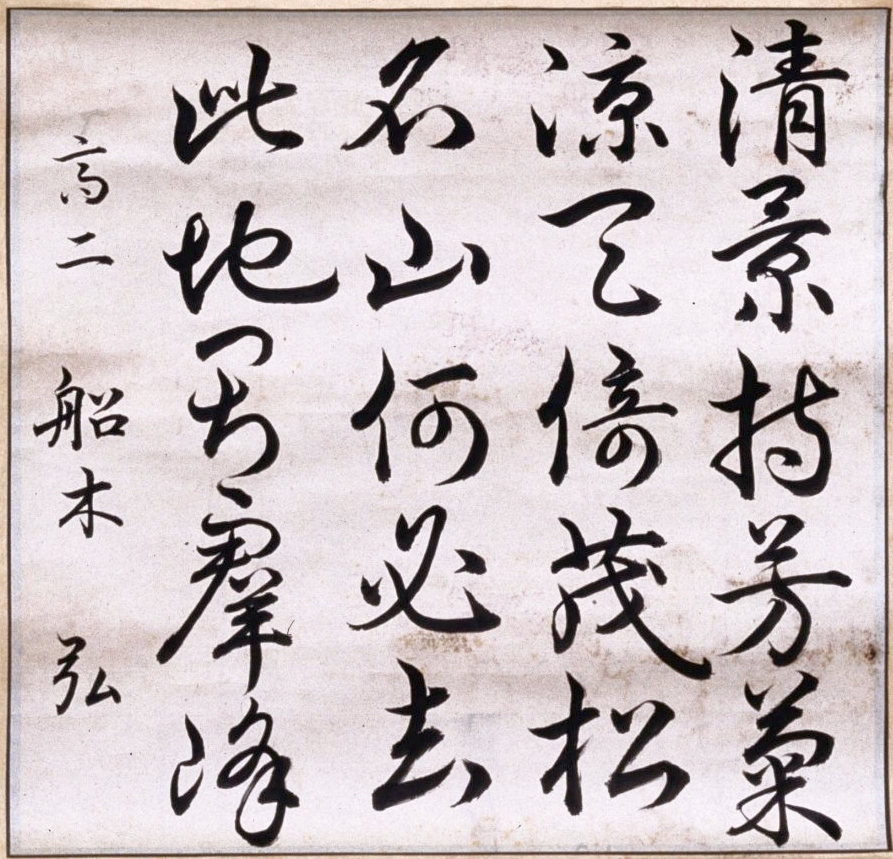 清景持芳菊
涼天倚茂松
名山何必去
此地有羣峰
高二 船木 弘